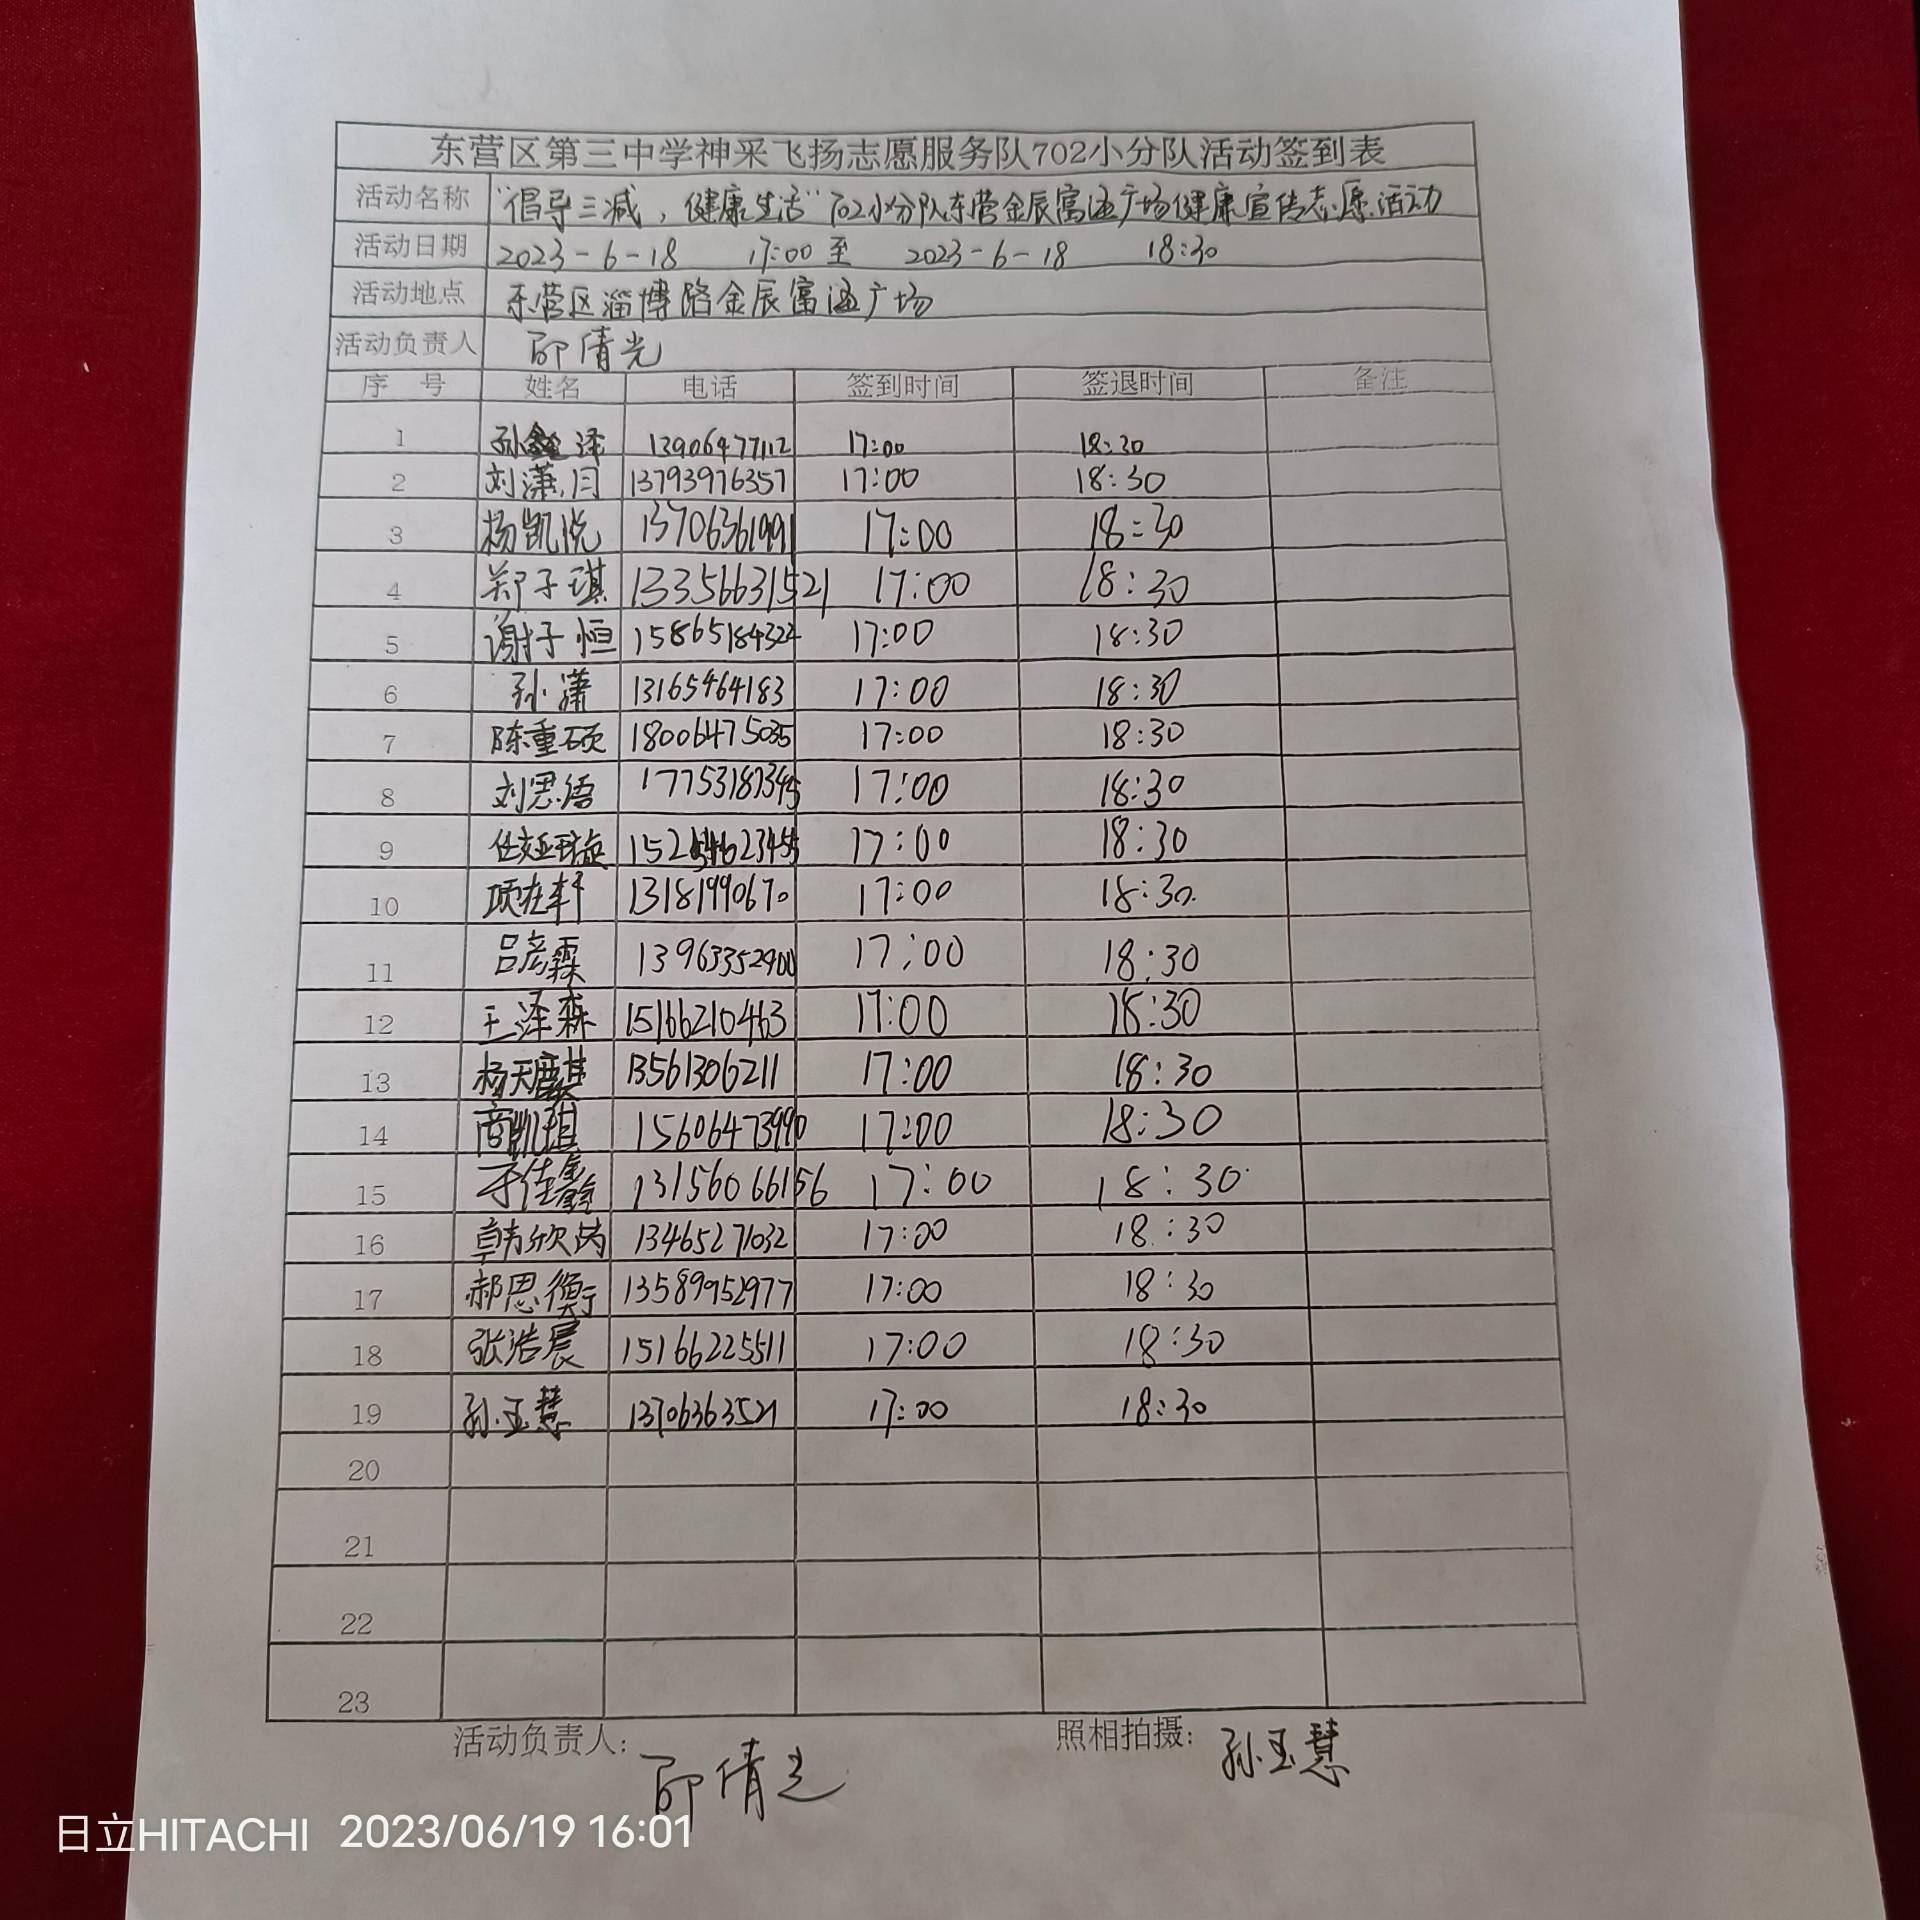 东营区第三中学神采飞扬志愿服务队702小分队活动签到表
活动名称 “倡导三减，健康生活”702小分队东营金辰富海广场健康宣传志愿活动
活动日期 2023-6-18 17:00 至 2023-6-18 18:30
活动地点 东营区淄博路金辰富海广场
活动负责人 倩光
序 号 姓名 电话 签到时间 签退时间 备注
1 孙鑫泽 13906477112 17:00 18:30
2 刘潇月 13793976357 17:00 18:30
3 杨凯悦 13706361991 17:00 18:30
4 郑子琪 13356631521 17:00 18:30
5 谢子恒 15865184322 17:00 18:30
6 孙潇 13165464183 17:00 18:30
7 陈重硕 18006475035 17:00 18:30
8 刘思语 17753187345 17:00 18:30
9 17:00 18:30
10 项在轩 13181990670 17:00 18:30
11 吕彦霖 13963352900 17:00 18:30
12 王泽森 15166210463 17:00 18:30
13 杨天麒 13561306211 17:00 18:30
14 商凯琪 15606473990 17:00 18:30
15 于佳鑫 13156066156 17:00 18:30
16 韩欣芮 13465271032 17:00 18:30
17 郝思衡 13589952977 17:00 18:30
18 张浩晨 15166225511 17:00 18:30
19 孙玉慧 13706363521 17:00 18:30
20
21
22
23
活动负责人: 倩光 照相拍摄: 孙玉慧
日立HITACHI 2023/06/19 16:01